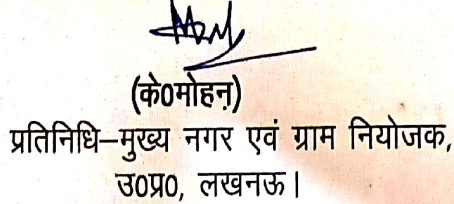 (के0मोहन)
प्रतिनिधि–मुख्य नगर एवं ग्राम नियोजक,
उ0प्र0, लखनऊ।